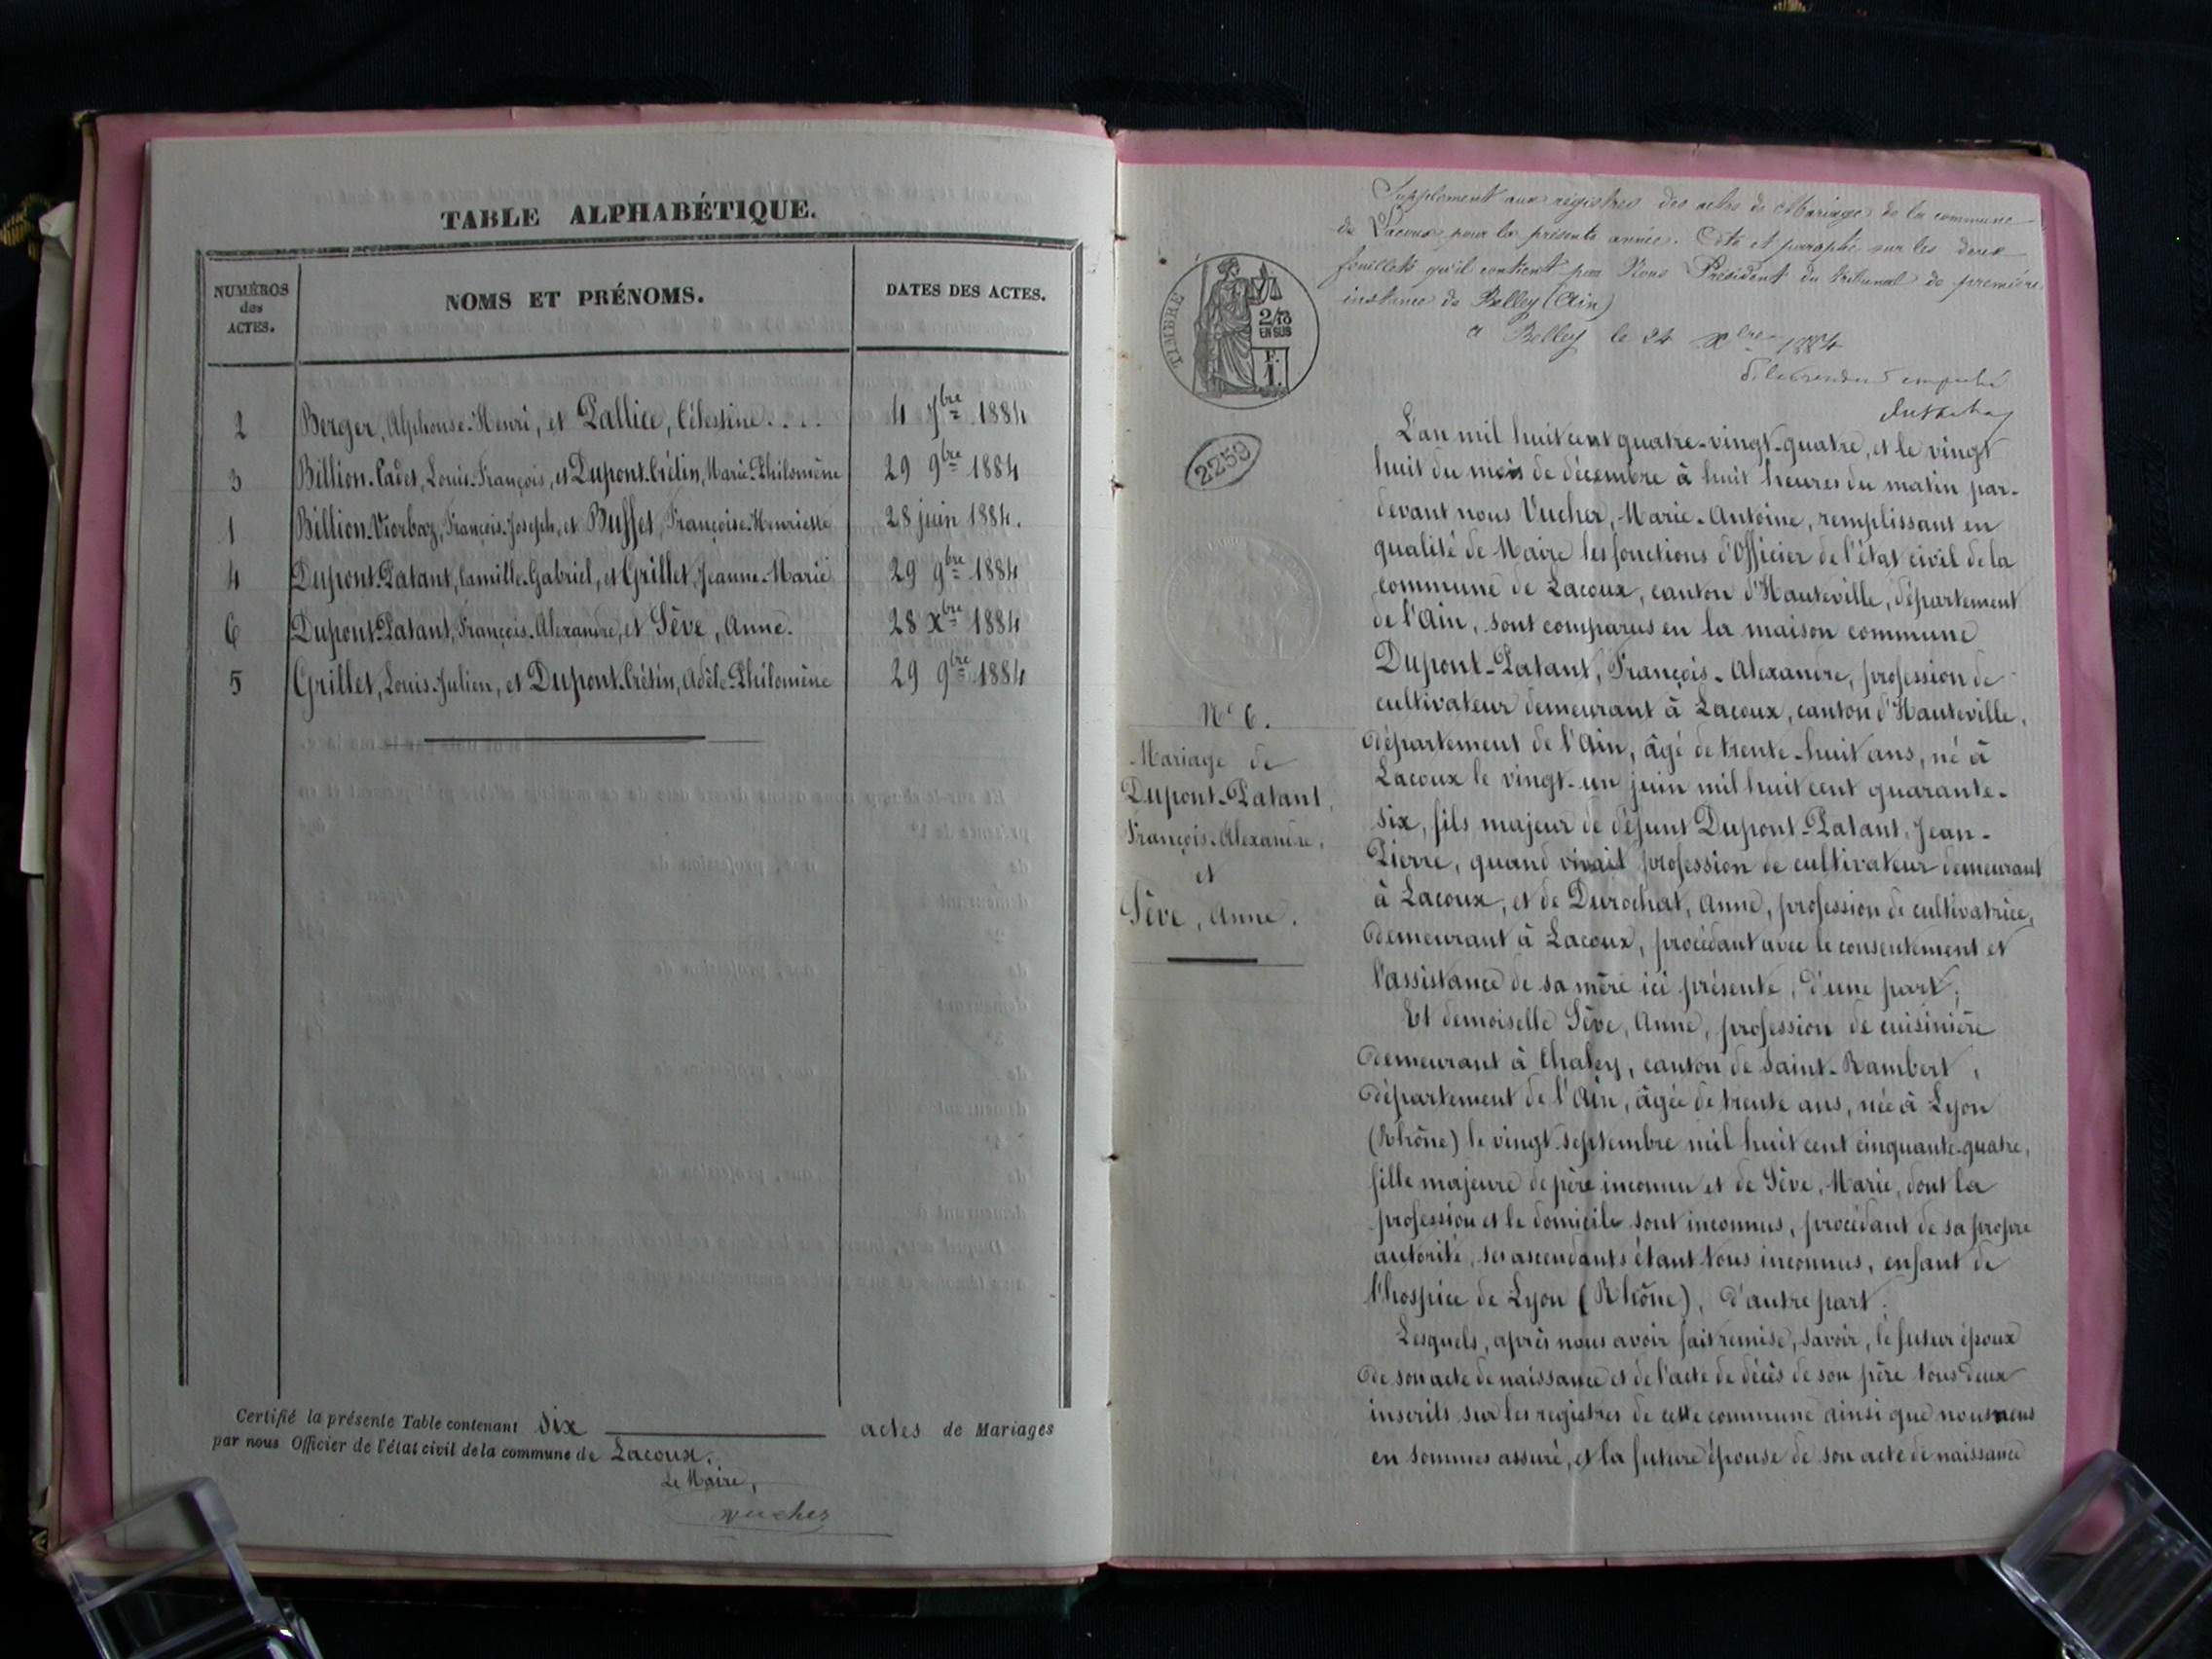 TABLE ALPHABÉTIQUE.
NUMÉROS des ACTES. NOMS ET PRÉNOMS. DATES DES ACTES.
2 Berger, Alphonse-Henri, et Pallice, Célestine.... 4 7bre 1884
3 Billion-Cadet, Louis-François, et Dupont-Crétin, Marie-Philomène 29 9bre 1884
1 Billion-Viorbaz, François-Joseph, et Buffet, Françoise-Henriette 28 juin 1884.
4 Dupont-Patant, Camille-Gabriel, et Grillet, Jeanne-Marie 29 9bre 1884
6 Dupont-Patant, François-Alexandre, et Sève, Anne. 28 Xbre 1884
5 Grillet, Louis-Julien, et Dupont-Crétin, Adèle-Philomène 29 9bre 1884
Certifié la présente Table contenant six actes de Mariages
par nous Officier de l'état civil de la commune de Lacoux.
Le Maire,
Vucher
Supplément aux registres des actes de Mariage de la commune
de Lacoux pour la présente année. Coté et paraphé sur les deux
feuillets qu'il contient par Nous Président du tribunal de première
instance de Belley (Ain)
a Belley le 24 Xbre 1884
TIMBRE
2/10
EN SUS
F.
1.
2259
N° 6.
Mariage de
Dupont-Patant,
François-Alexandre,
et
Sève, Anne.
L'an mil huit cent quatre-vingt-quatre, et le vingt
huit du mois de décembre à huit heures du matin par-
devant nous Vucher, Marie-Antoine, remplissant en
qualité de Maire les fonctions d'Officier de l'état civil de la
commune de Lacoux, canton d'Hauteville, département
de l'Ain, sont comparus en la maison commune
Dupont-Patant, François-Alexandre, profession de
cultivateur demeurant à Lacoux, canton d'Hauteville,
département de l'Ain, âgé de trente-huit ans, né à
Lacoux le vingt-un juin mil huit cent quarante-
six, fils majeur de défunt Dupont-Patant, Jean-
Pierre, quand vivait profession de cultivateur demeurant
à Lacoux, et de Durochat, Anne, profession de cultivatrice,
demeurant à Lacoux, procédant avec le consentement et
l'assistance de sa mère ici présente, d'une part;
Et demoiselle Sève, Anne, profession de cuisinière
demeurant à Chaley, canton de Saint-Rambert,
département de l'Ain, âgée de trente ans, née à Lyon
(Rhône) le vingt septembre mil huit cent cinquante-quatre,
fille majeure de père inconnu et de Sève, Marie, dont la
profession et le domicile sont inconnus, procédant de sa propre
autorité, ses ascendants étant tous inconnus, enfant de
l'hospice de Lyon (Rhône), d'autre part;
Lesquels, après nous avoir fait remise, savoir, le futur époux
de son acte de naissance et de l'acte de décès de son père tous deux
inscrits sur les registres de cette commune ainsi que nous nous
en sommes assuré, et la future épouse de son acte de naissance